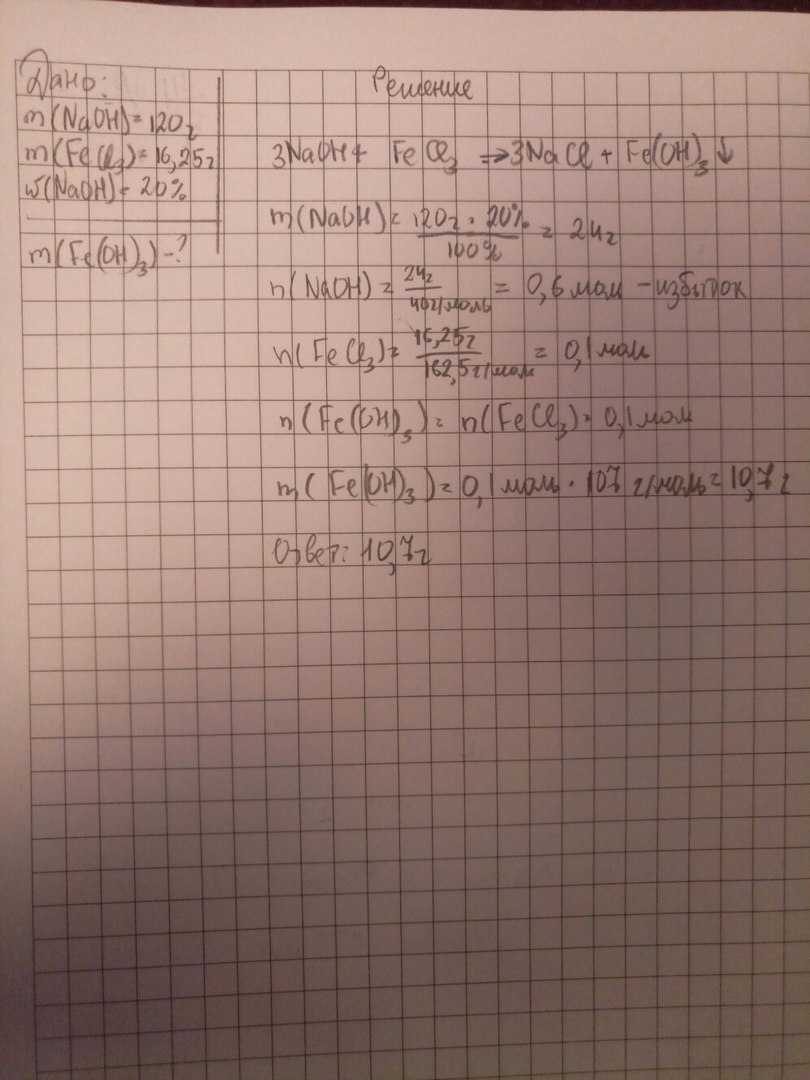 Дано:
m(NaOH)=120г
m(FeCl₃)=16,25г
w(NaOH)-20%
m(Fe(OH)₃)-?
Решение
3NaOH+ FeCl₃ ⇒3NaCl + Fe(OH)₃↓
m(NaOH)= 120г · 20% / 100% = 24г
n(NaOH)= 24г / 40г/моль = 0,6 мол - избыток
n(FeCl₃)= 16,25г / 162,5г/мол = 0,1 мол
n(Fe(OH)₃)= n(FeCl₃)= 0,1 мол
m(Fe(OH)₃)= 0,1 моль · 107 г/моль= 10,7г
Ответ: 10,7г